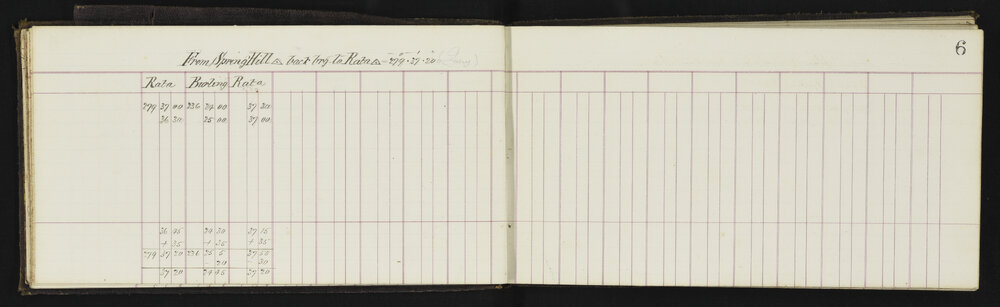 6
From Spring Hill △ back brg. to Rata △ - 279° 37' 20"
Rata Burling Rata
279 37 00 236 24 00 37 30
36 30 25 00 37 00
36 45 24 30 37 15
+ 35 + 35 + 35
279 37 20 236 25 5 37 50
- 20 - 30
37 20 24 45 37 20